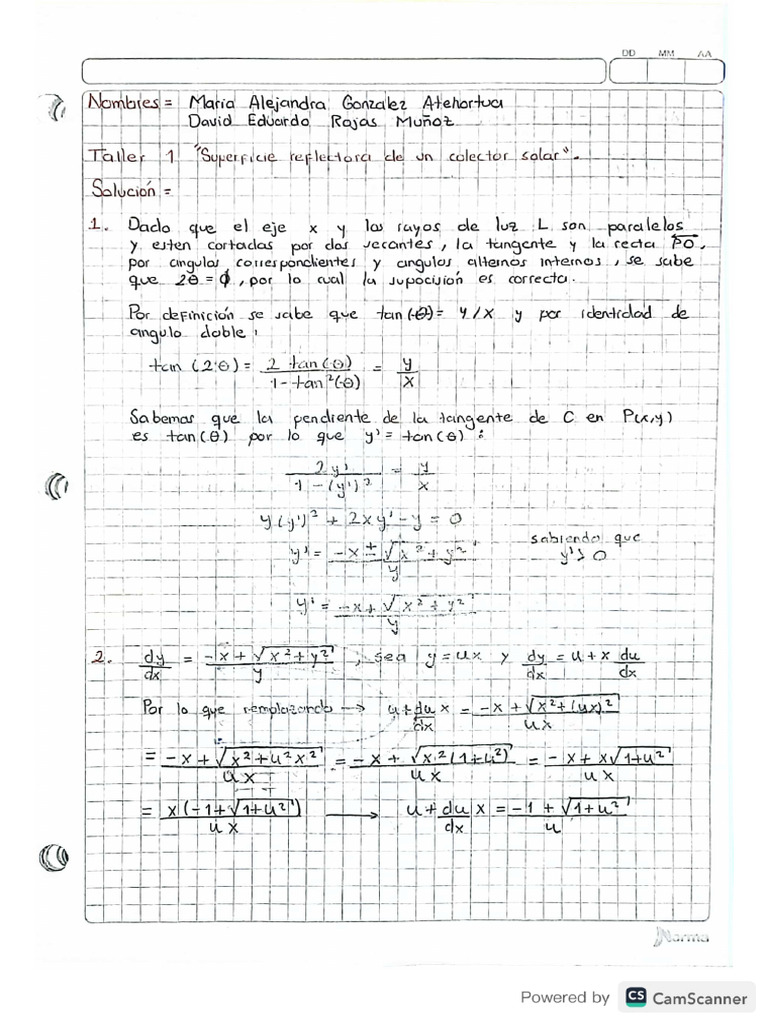 DD MM AA
Nombres = Maria Alejandra Gonzalez Atehortua
David Eduardo Rojas Muñoz
Taller 1 "Superficie reflectora de un colector solar".
Solución =
1. Dado que el eje x y los rayos de luz L son paralelos
y esten cortadas por dos secantes, la tangente y la recta PO,
por angulos correspondientes y angulos alternos internos, se sabe
que 2θ = ϕ, por lo cual la supocisión es correcta.
Por definición se sabe que tan(θ) = y/x y por identidad de
angulo doble:
tan(2θ) = 2 tan(θ) / 1 - tan²(θ) = y / x
Sabemos que la pendiente de la tangente de C en P(x,y)
es tan(θ) por lo que y' = tan(θ) :
2y' / 1 - (y')² = y / x
y(y')² + 2xy' - y = 0
y' = -x ± √x² + y² / y sabiendo que y' > 0
y' = -x + √x² + y² / y
2. dy/dx = -x + √x² + y² / y , sea y = ux y dy/dx = u + x du/dx
Por lo que remplazando → u + du/dx x = -x + √x² + (ux)² / ux
= -x + √x² + u²x² / ux = -x + √x²(1+u²) / ux = -x + x√1+u² / ux
= x(-1+√1+u²) / ux → u + du/dx x = -1 + √1+u² / u
Norma
Powered by CS CamScanner